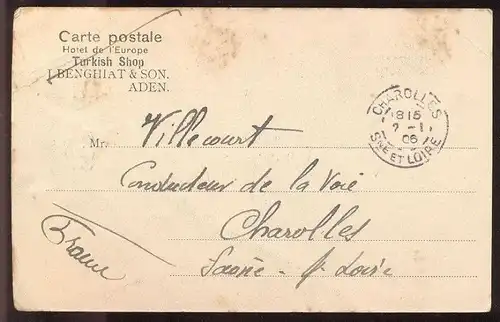 Carte postale
Hotel de l'Europe
Turkish Shop
I. BENGHIAT & SON.
ADEN.
CHAROLLES
815
2 - 1
06
SNE ET LOIRE
Mr Villecourt
Conducteur de la Voie
Charolles
Saône - & Loire
France